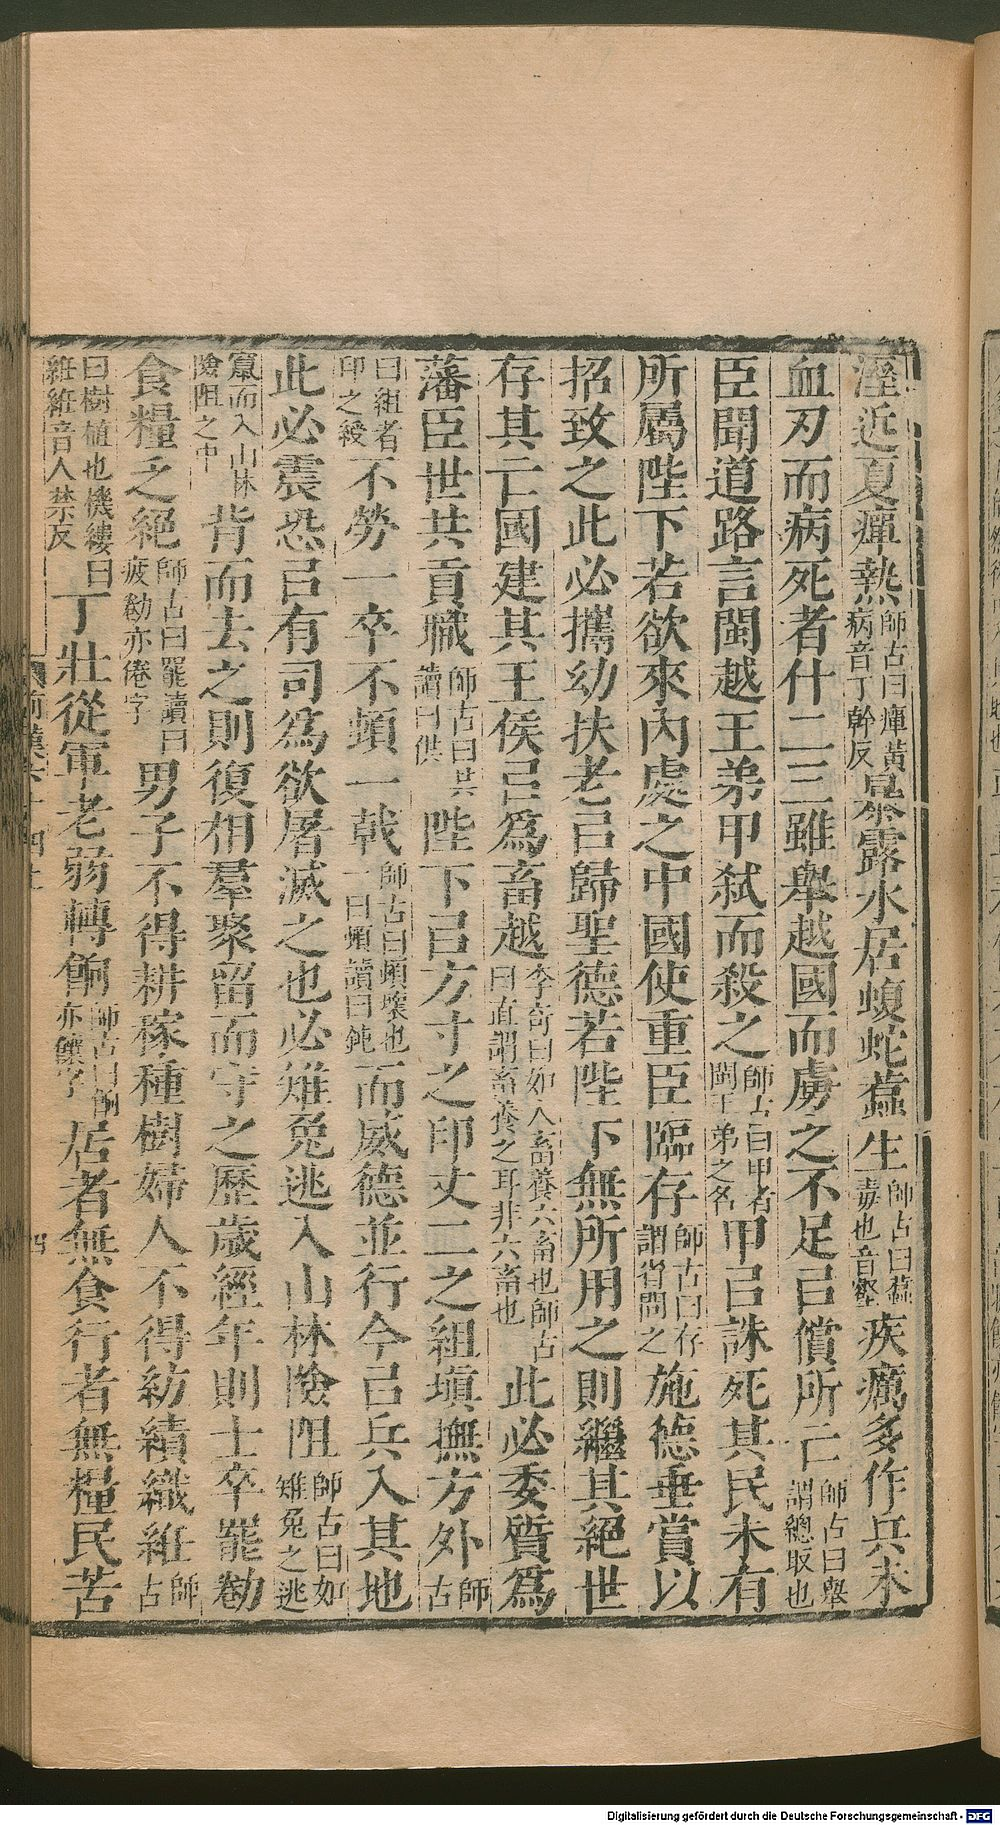 溼近夏癉熱師古曰癉黃病音丁幹反暴露水居蝮蛇蠚生師古曰蠚毒也音壑疾癘多作兵未
血刃而病死者什二三雖舉越國而虜之不足㠯償所亡師古曰舉謂總取也
臣聞道路言閩越王弟甲弒而殺之師古曰甲者閩王弟之名甲㠯誅死其民未有
所屬陛下若欲來內處之中國使重臣臨存師古曰存謂省問之施德垂賞以
招致之此必攜幼扶老㠯歸聖德若陛下無所用之則繼其絕世
存其亡國建其王侯㠯爲畜越李奇曰如人畜養六畜也師古曰直謂畜養之耳非六畜也此必委質爲
藩臣世共貢職師古曰共讀曰供陛下㠯方寸之印丈二之組塡撫方外師古
曰組者印之綬不勞一卒不頓一戟師古曰頓壞也一曰頓讀曰鈍而威德並行今㠯兵入其地
此必震恐㠯有司爲欲屠滅之也必雉兔逃入山林險阻師古曰如雉兔之逃
竄而入山林險阻之中背而去之則復相羣聚留而守之歷歲經年則士卒罷勌
食糧乏絕師古曰罷讀曰疲勌亦倦字男子不得耕稼種樹婦人不得紡績織絍師古
曰樹植也機縷曰絍絍音人禁反丁壯從軍老弱轉餉師古曰餉亦饟字居者無食行者無糧民苦
Digitalisierung gefördert durch die Deutsche Forschungsgemeinschaft - DFG